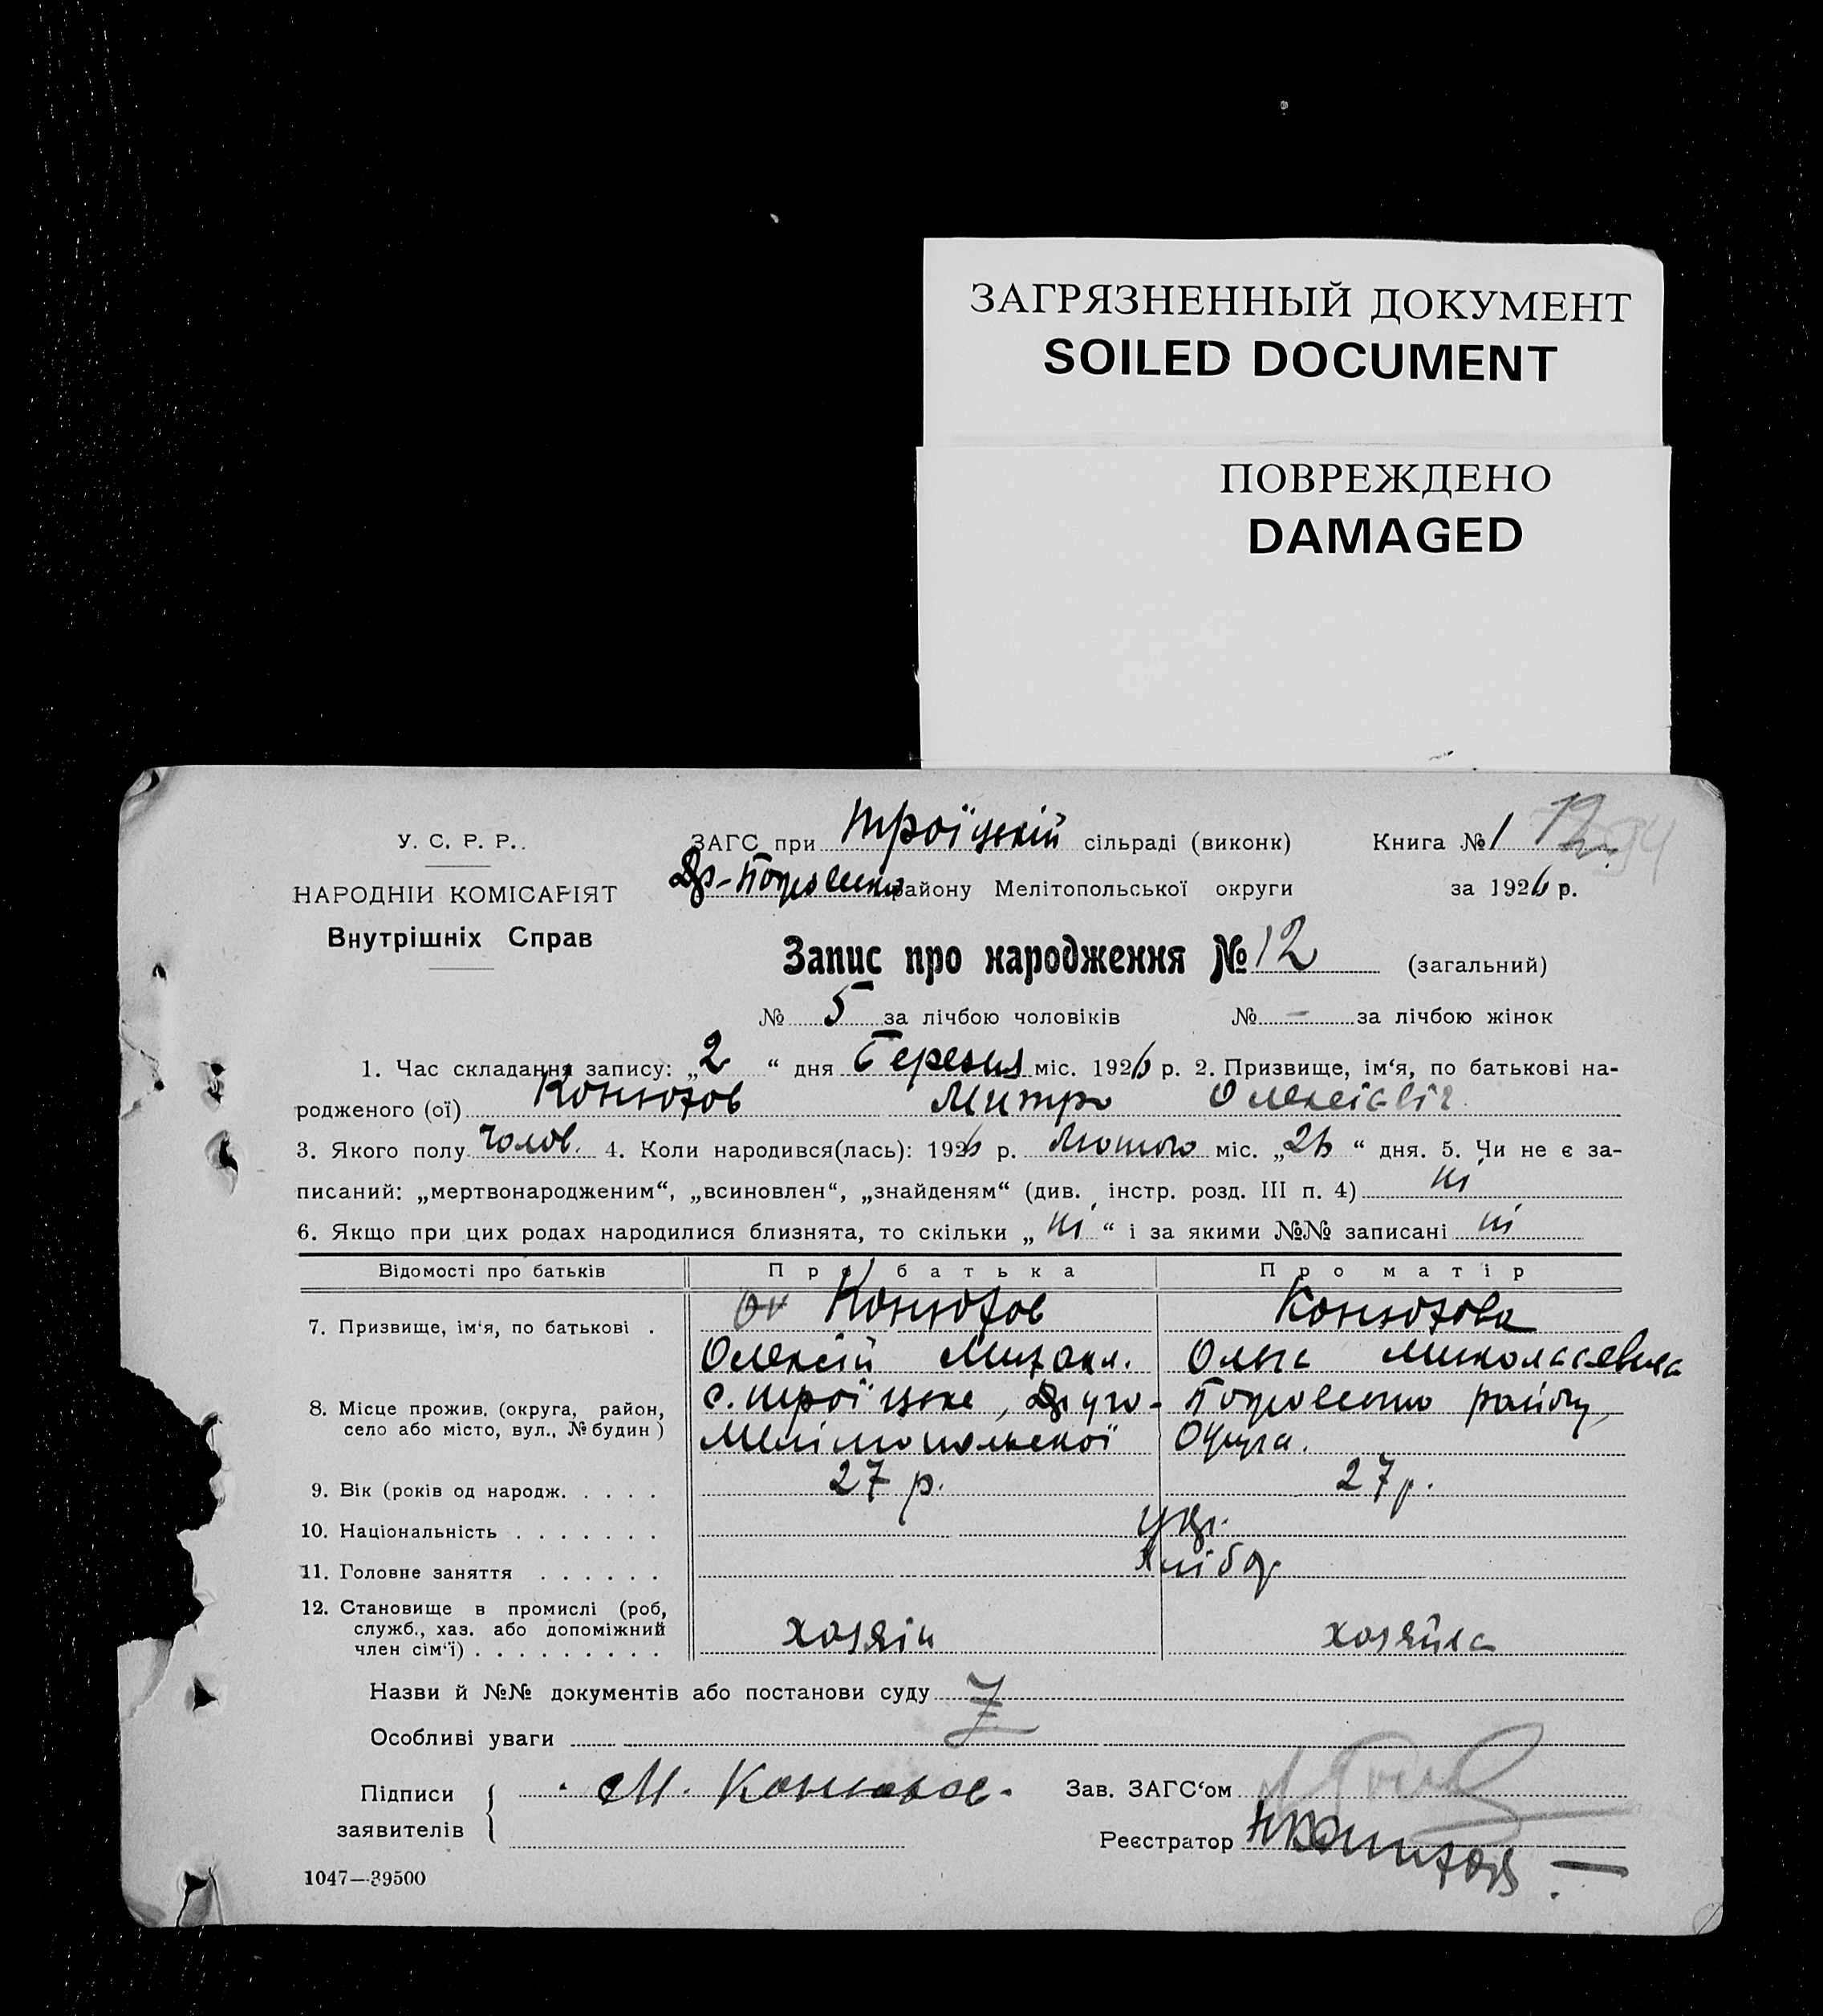 ЗАГРЯЗНЕННЫЙ ДОКУМЕНТ
SOILED DOCUMENT
ПОВРЕЖДЕНО
DAMAGED
У. С. Р. Р.
НАРОДНІЙ КОМІСАРІЯТ
Внутрішніх Справ
ЗАГС при Троїцькій сільраді (виконк) Книга № 1
району Мелітопольської округи за 1926 р.
Запис про народження № 12 (загальний)
№ 5 за лічбою чоловіків № - за лічбою жінок
1. Час складання запису: „2“ дня Березня міс. 1926 р. 2. Призвище, ім‘я, по батькові на-
родженого (ої) Конюхов Митро Олексієвіч
3. Якого полу чолов. 4. Коли народився(лась): 1926 р. Лютого міс. „26“ дня. 5. Чи не є за-
писаний: „мертвонародженим“, „всиновлен“, „знайденям“ (див. інстр. розд. III п. 4) ні
6. Якщо при цих родах народилися близнята, то скільки „ні“ і за якими №№ записані ні
Відомості про батьків Про батька Про матір
7. Призвище, ім‘я, по батькові . Конюхов Конюхова
Олексій Михайл. Ольга Миколаєвна
8. Місце прожив. (округа, район, с. Троїцьке, Друго- Покровського району,
село або місто, вул., № будин) Мелітопольської Округи.
9. Вік (років од народж. . . . . 27 р. 27 р.
10. Національність . . . . . . . укр.
11. Головне заняття . . . . . . хлібор
12. Становище в промислі (роб,
служб., хаз. або допоміжний
член сім‘ї) . . . . . . . . . хозяін хозяйка
Назви й №№ документів або постанови суду
Особливі уваги
Підписи М. Конюхов. Зав. ЗАГС‘ом
заявителів Реєстратор
1047—39500